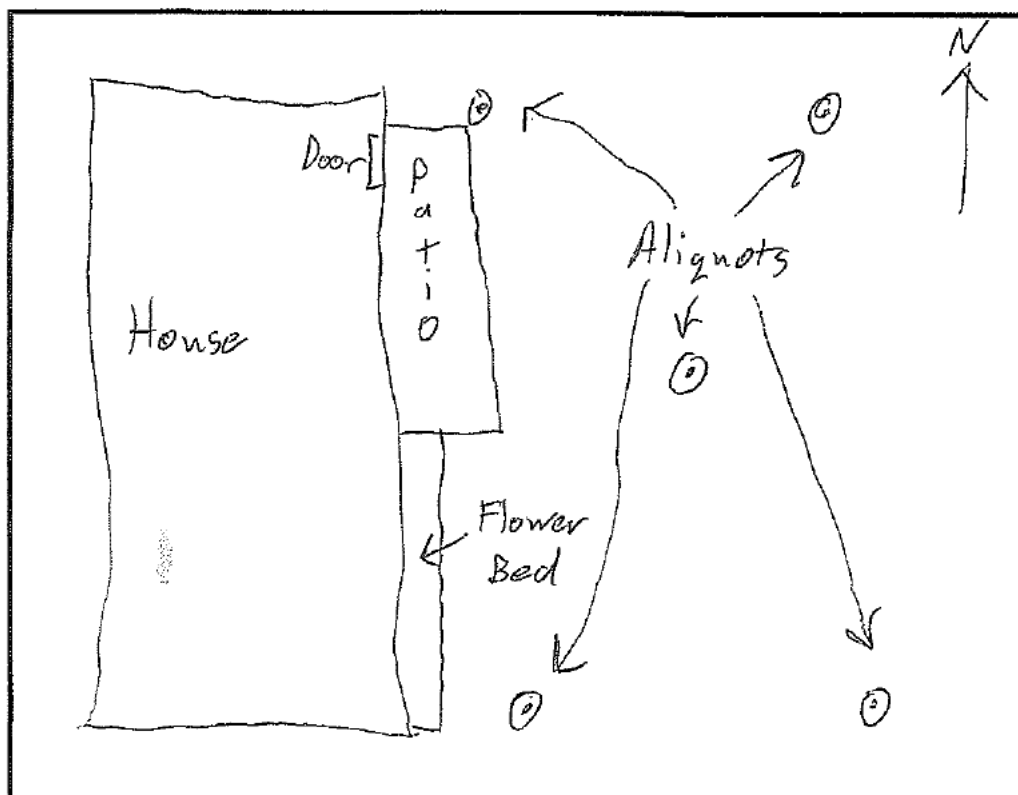 N
Door
Patio
Aliquots
House
Flower
Bed